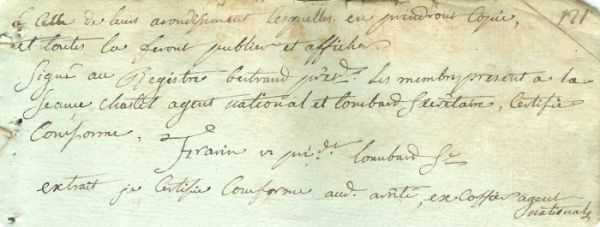 a Celle de leurs arondisement lesquelles en prendront Copie,
et toutes la feront publier et afficher
Signé au Registre bertrand présdt. Les membres present a la
Seance chastel agent national et lombard Secrétaire, Certifié
Conforme.
vi présdt lombard Sre
extrait je Certifie Conforme aud. arrêté, agent
national
121